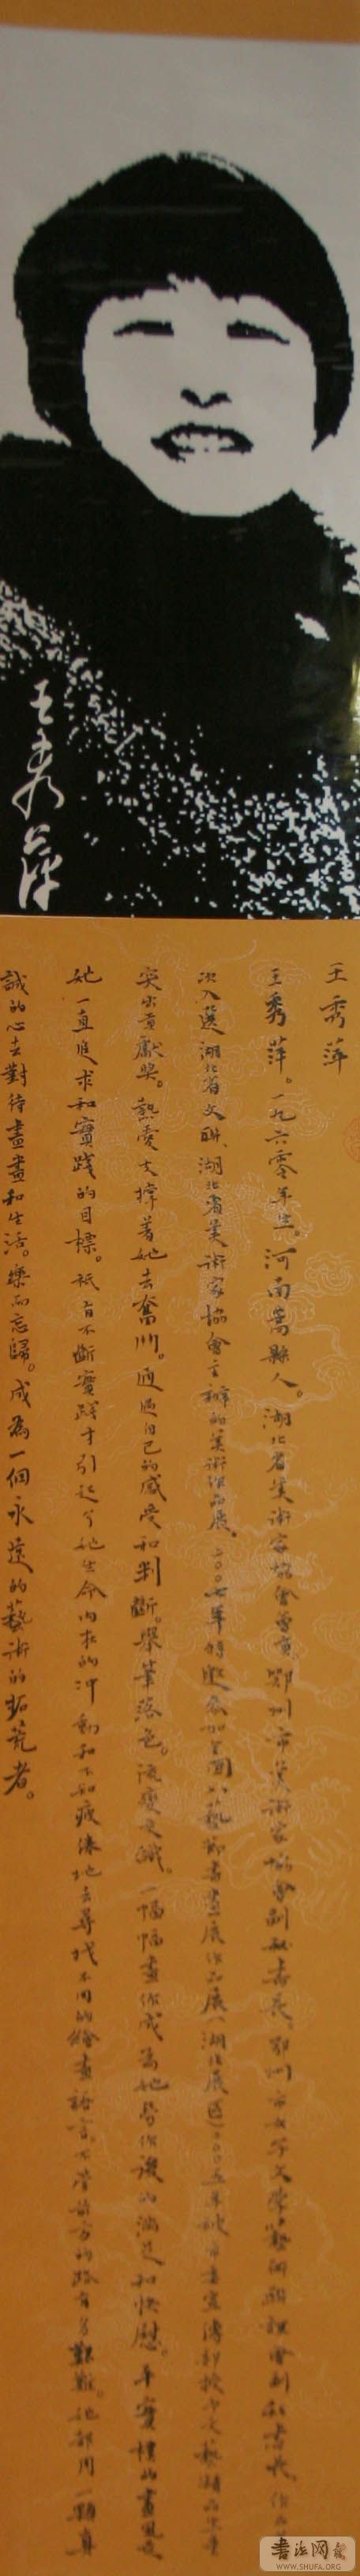 王秀萍
王秀萍
王秀萍。一九六零年生。河南嵩縣人。湖北省美術家協會會員。鄂州市美術家協會副秘書長。鄂州市女子文學藝術聯誼會副秘書長。作品
次入選湖北省文聯、湖北省美術家協會主辦的美術作品展。二〇〇七年特邀參加全國八藝節書畫展作品展（湖北展區）二〇〇五年被市委宣傳部授予文藝精品生產
突出貢獻獎。熱愛支撐着她去奮鬥。通過自己的感受和判斷。舉筆落色。一幅幅畫作成為她勞作後的滿足和快慰。平實樸的畫風是
她一直追求和實踐的目標。祇有不斷實踐才引起了她生命内在的冲動和不知疲倦地去尋找不同的繪畫語言。不管前方的路有多艱難。她都用一顆真
誠的心去對待畫畫和生活。樂而忘歸。成為一個永遠的藝術的拓荒者。
書法网
WWW.SHUFA.ORG